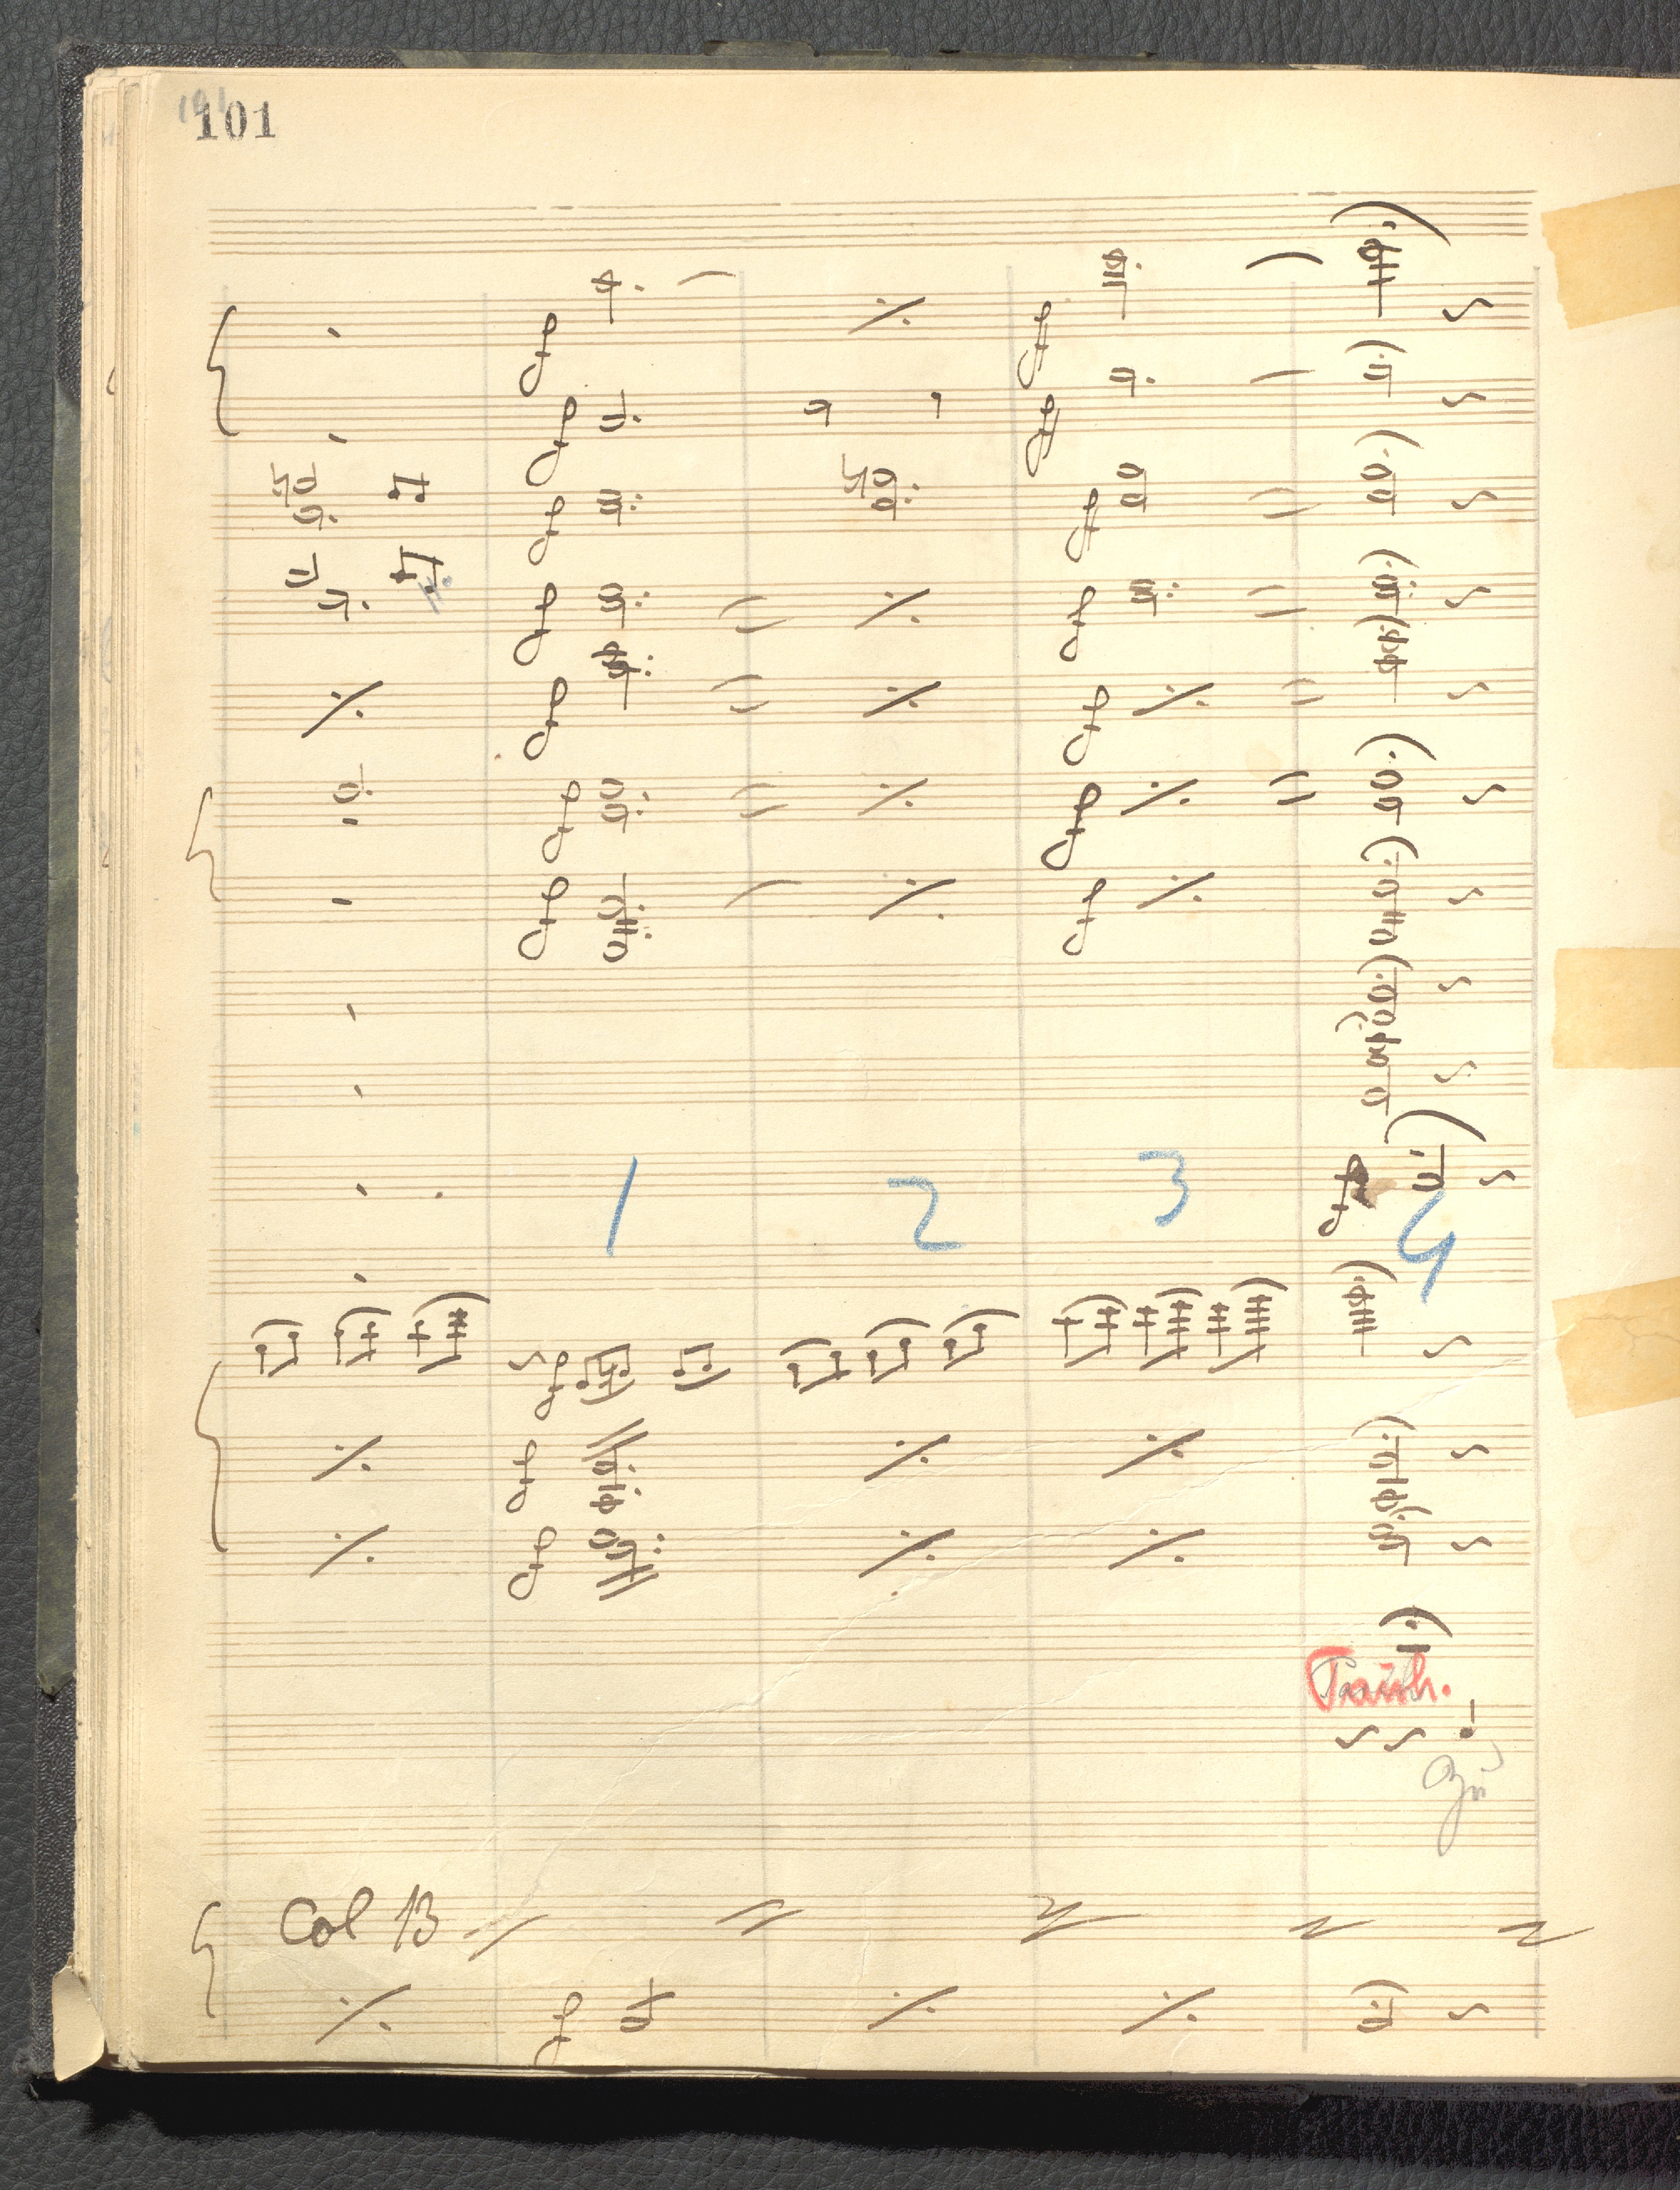 101
f
ff
f
ff
f
ff
f
f
f
f
f
f
f
f
1 2 3 4
f
f
f
Tamb.
Col B
f